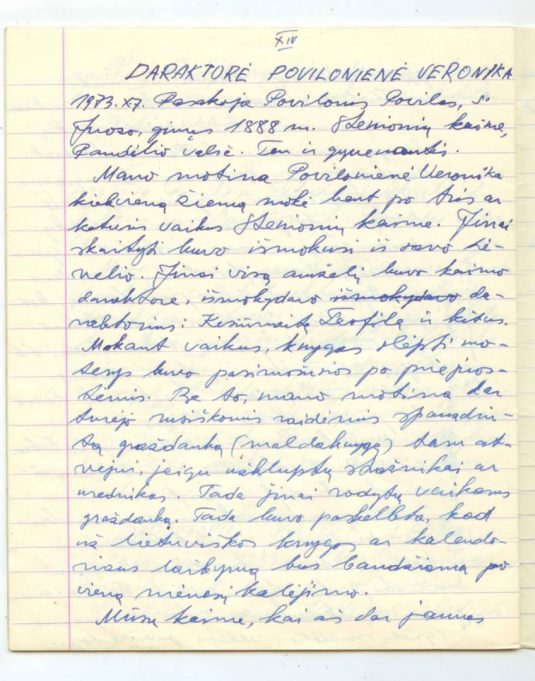 XIV
DARAKTORĖ POVILONIENĖ VERONIKA
1973.XI. Pasakoja Povilonis Povilas, s.
Juozo, gimęs 1888 m. Stenionių kaime,
Pandėlio valsč. Ten ir gyvenantis.
Mano motina Povilonienė Veronika
kiekvieną žiemą mokė bent po tris ar
keturis vaikus Stenionių kaime. Jinai
skaityti buvo išmokusi iš savo tė-
velio. Jinai visą amželį buvo kaimo
daraktore, išmokydavo išmokydavo da-
raktorius: Teofilę ir kitus.
Mokant vaikus, knygas slėpti mo-
terys buvo pasimokinos po priejuos-
tėmis. Be to, mano motina dar
turėjo rusiškomis raidėmis spausdin-
tą graždanką (maldaknygę) tam at-
vejui, jeigu užkluptų stražnikai ar
urednikas. Tada jinai rodytų vaikams
graždanką. Tada buvo paskelbta, kad
už lietuviškos knygos ar kalendo-
riaus laikymą bus baudžiama po
vieną mėnesį kalėjimo.
Mūsų kaime, kai aš dar jaunas